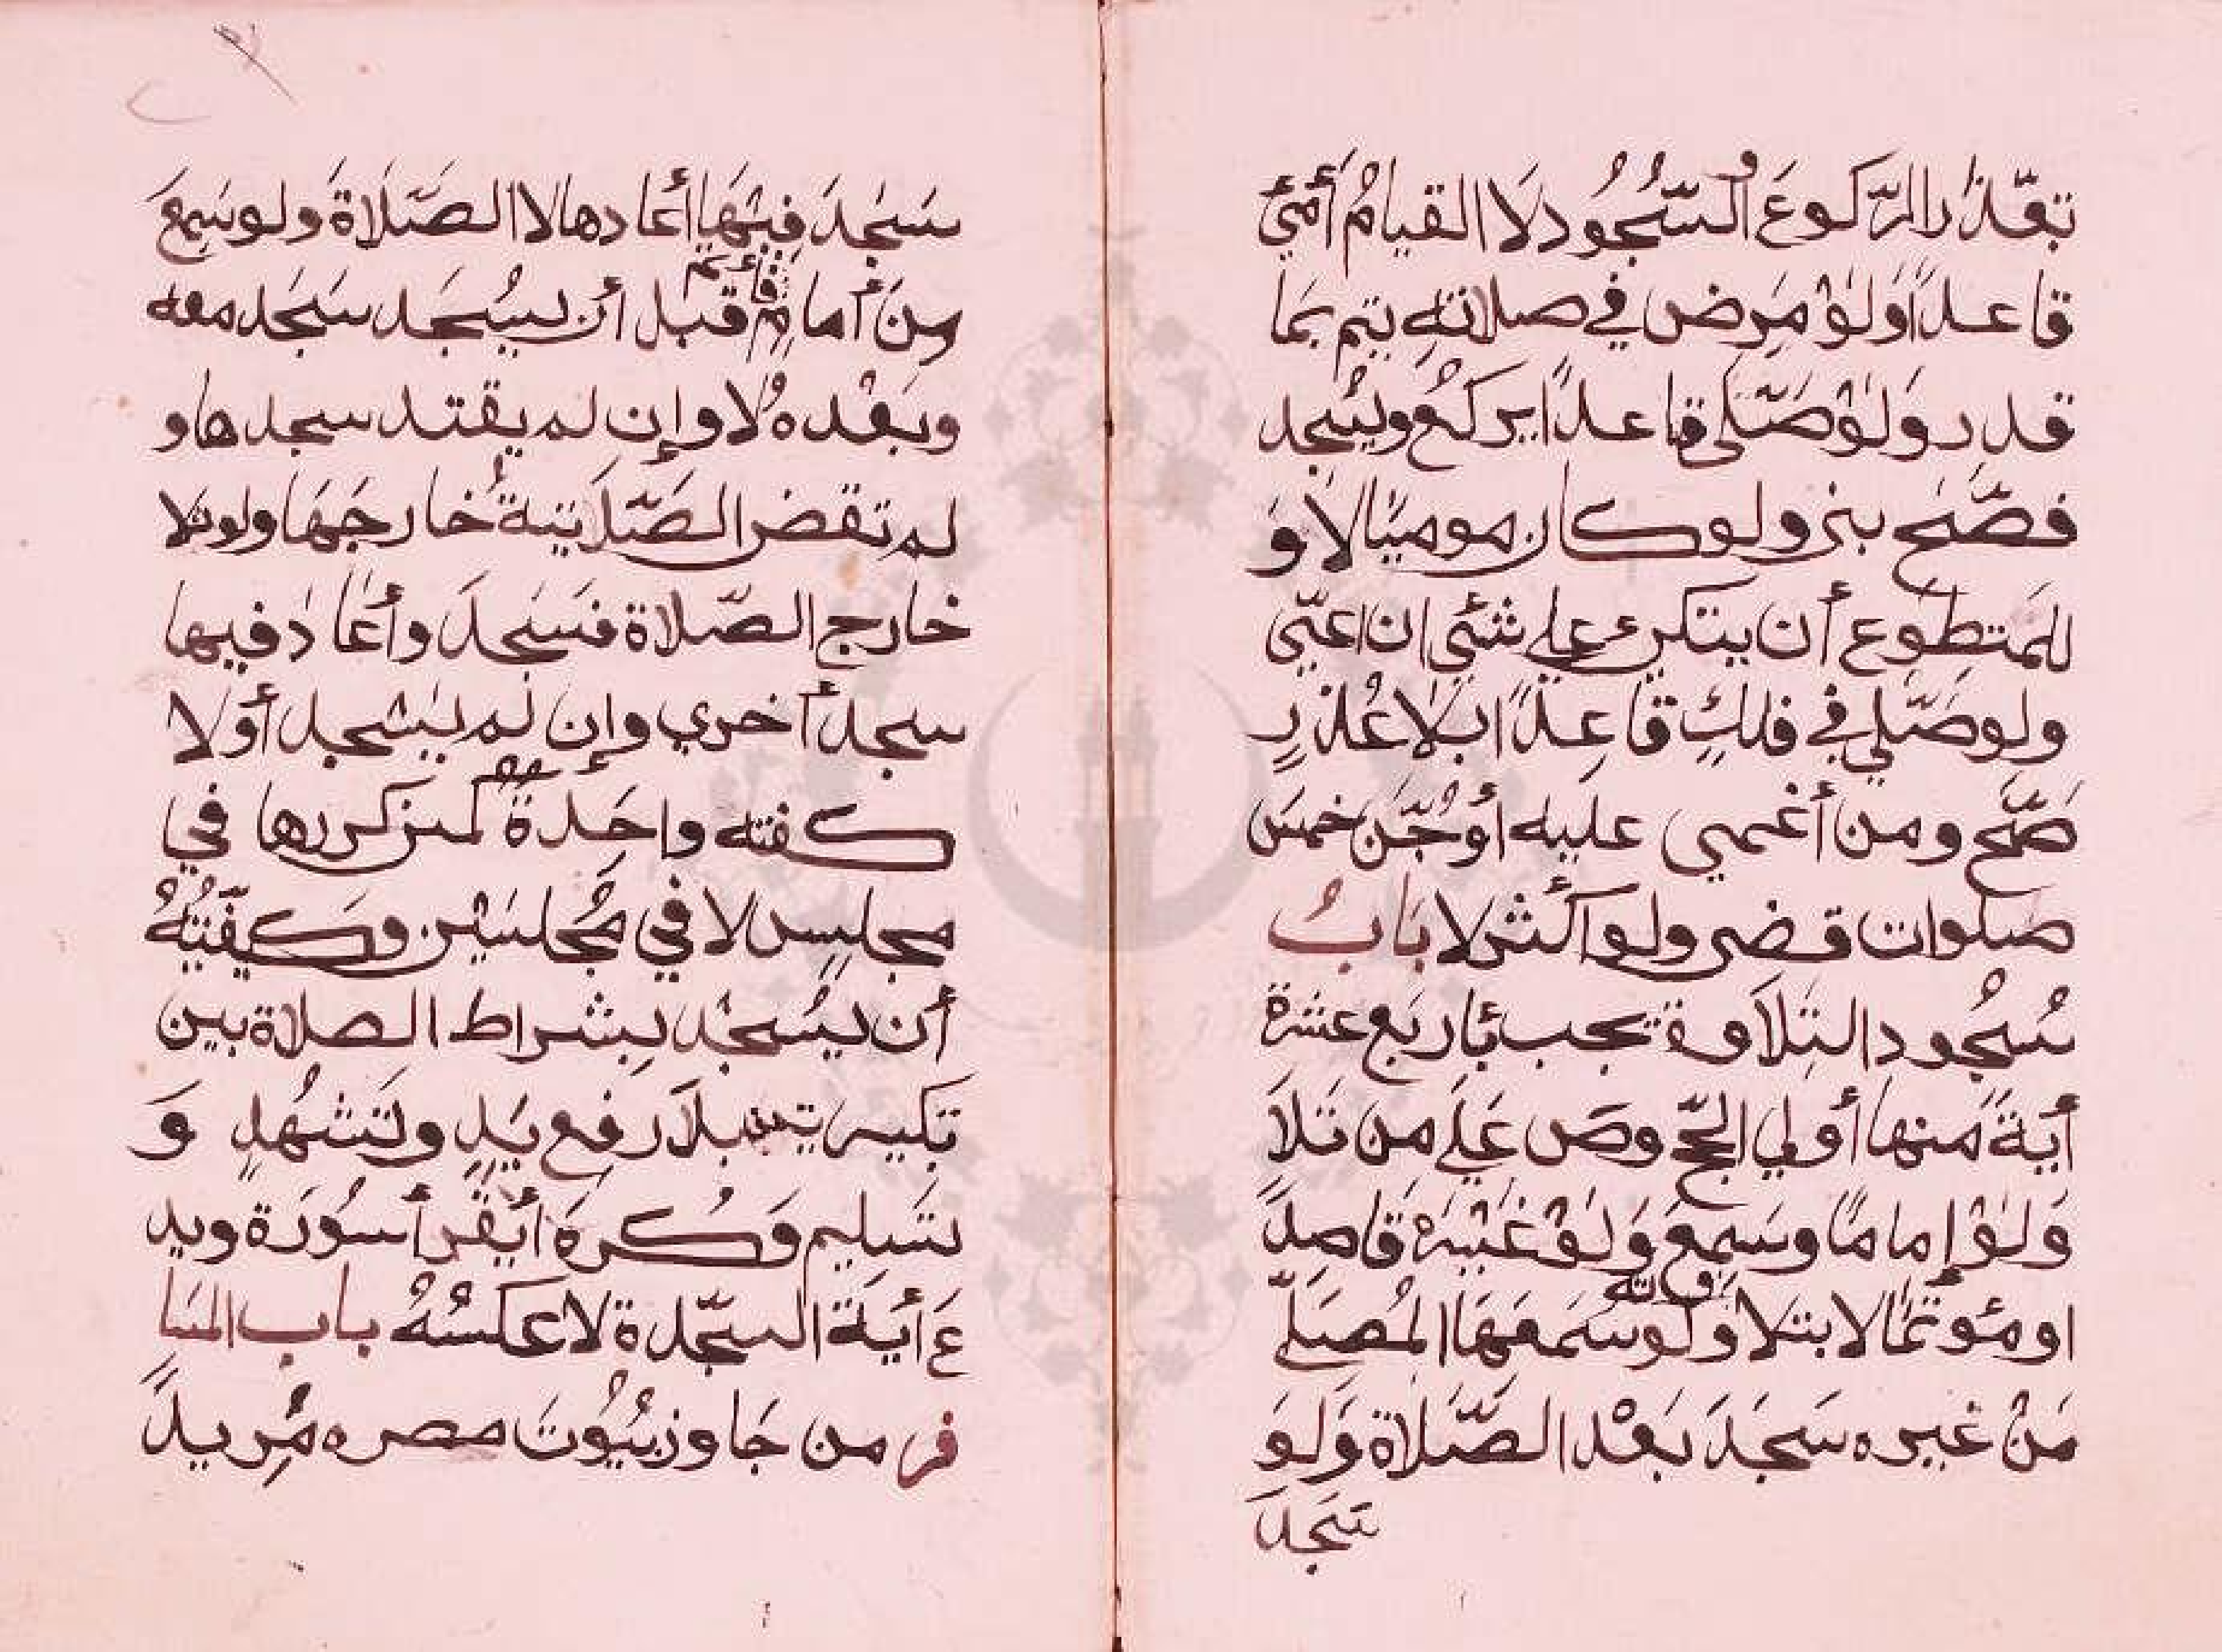 تعذّر الرّكوعَ والسّجُود لَا القيامُ أمئ
قاعداً وَلوْ مَرِض في صلاتهِ يتم بمَا
قدر وَلوْ صَلّى قاعداً يركعُ ويسْجد
فصّح بنز ولو كان موميًا لا وَ
للمَتطِوع أن يتكئ علي شئي ان اعيّي
ولو صَلّي في فلكٍ قاعِداً بلَا عُذرٍ
صَّح ومن أغمي عليه أو جُنّ خمسَ
صلوات قضي ولو اكثر لا بَابُ
سُجُود التِلاَوة تجب بأربَع عشرة
أيةً منها أولي الحّج وصَ عَلَي من تَلاَ
وَلوْ إمامًا وسَمِعَ وَلوْ غيْرَ قاصِداً
او مؤتماً لا بتلاوته ولو سَمعَهَا المُصَلّي
مَنْ غيره سَجَدَ بَعْد الصّلاة وَلَوَ
سَجَدَ
سَجَدَ فيْهَا أعادها لا الصّلَاةَ ولو سَمِعَ
مِنَ أمامٍ فأئتم قبل أن يسْجَد سَجَد معه
وبعْده لا وإن لم يقتد سجدها و
لم تقض الصّلَاتية خارجَهَا ولو تلا
خارج الصّلاة فسَجدَ وأعَاد فيها
سجد أخري وإن لم يسْجد أولا
كفته واحَدةُ كمن كررها في
مجلسٍ لا في مجْلسَيْن وَكيفيّتُهُ
أن يسْجُد بشراط الصلاة بين
تكبيرتين بلاَ رفِع يَدٍ وتَشهُدٍ وَ
تسَليم وَكُرهَ أن يقرأ سُورَة ويد
عَ أيَةَ السجّدة لا عكسُهُ باب المسَا
فر من جَاوز بيُوُتَ مصره مُرِيداً